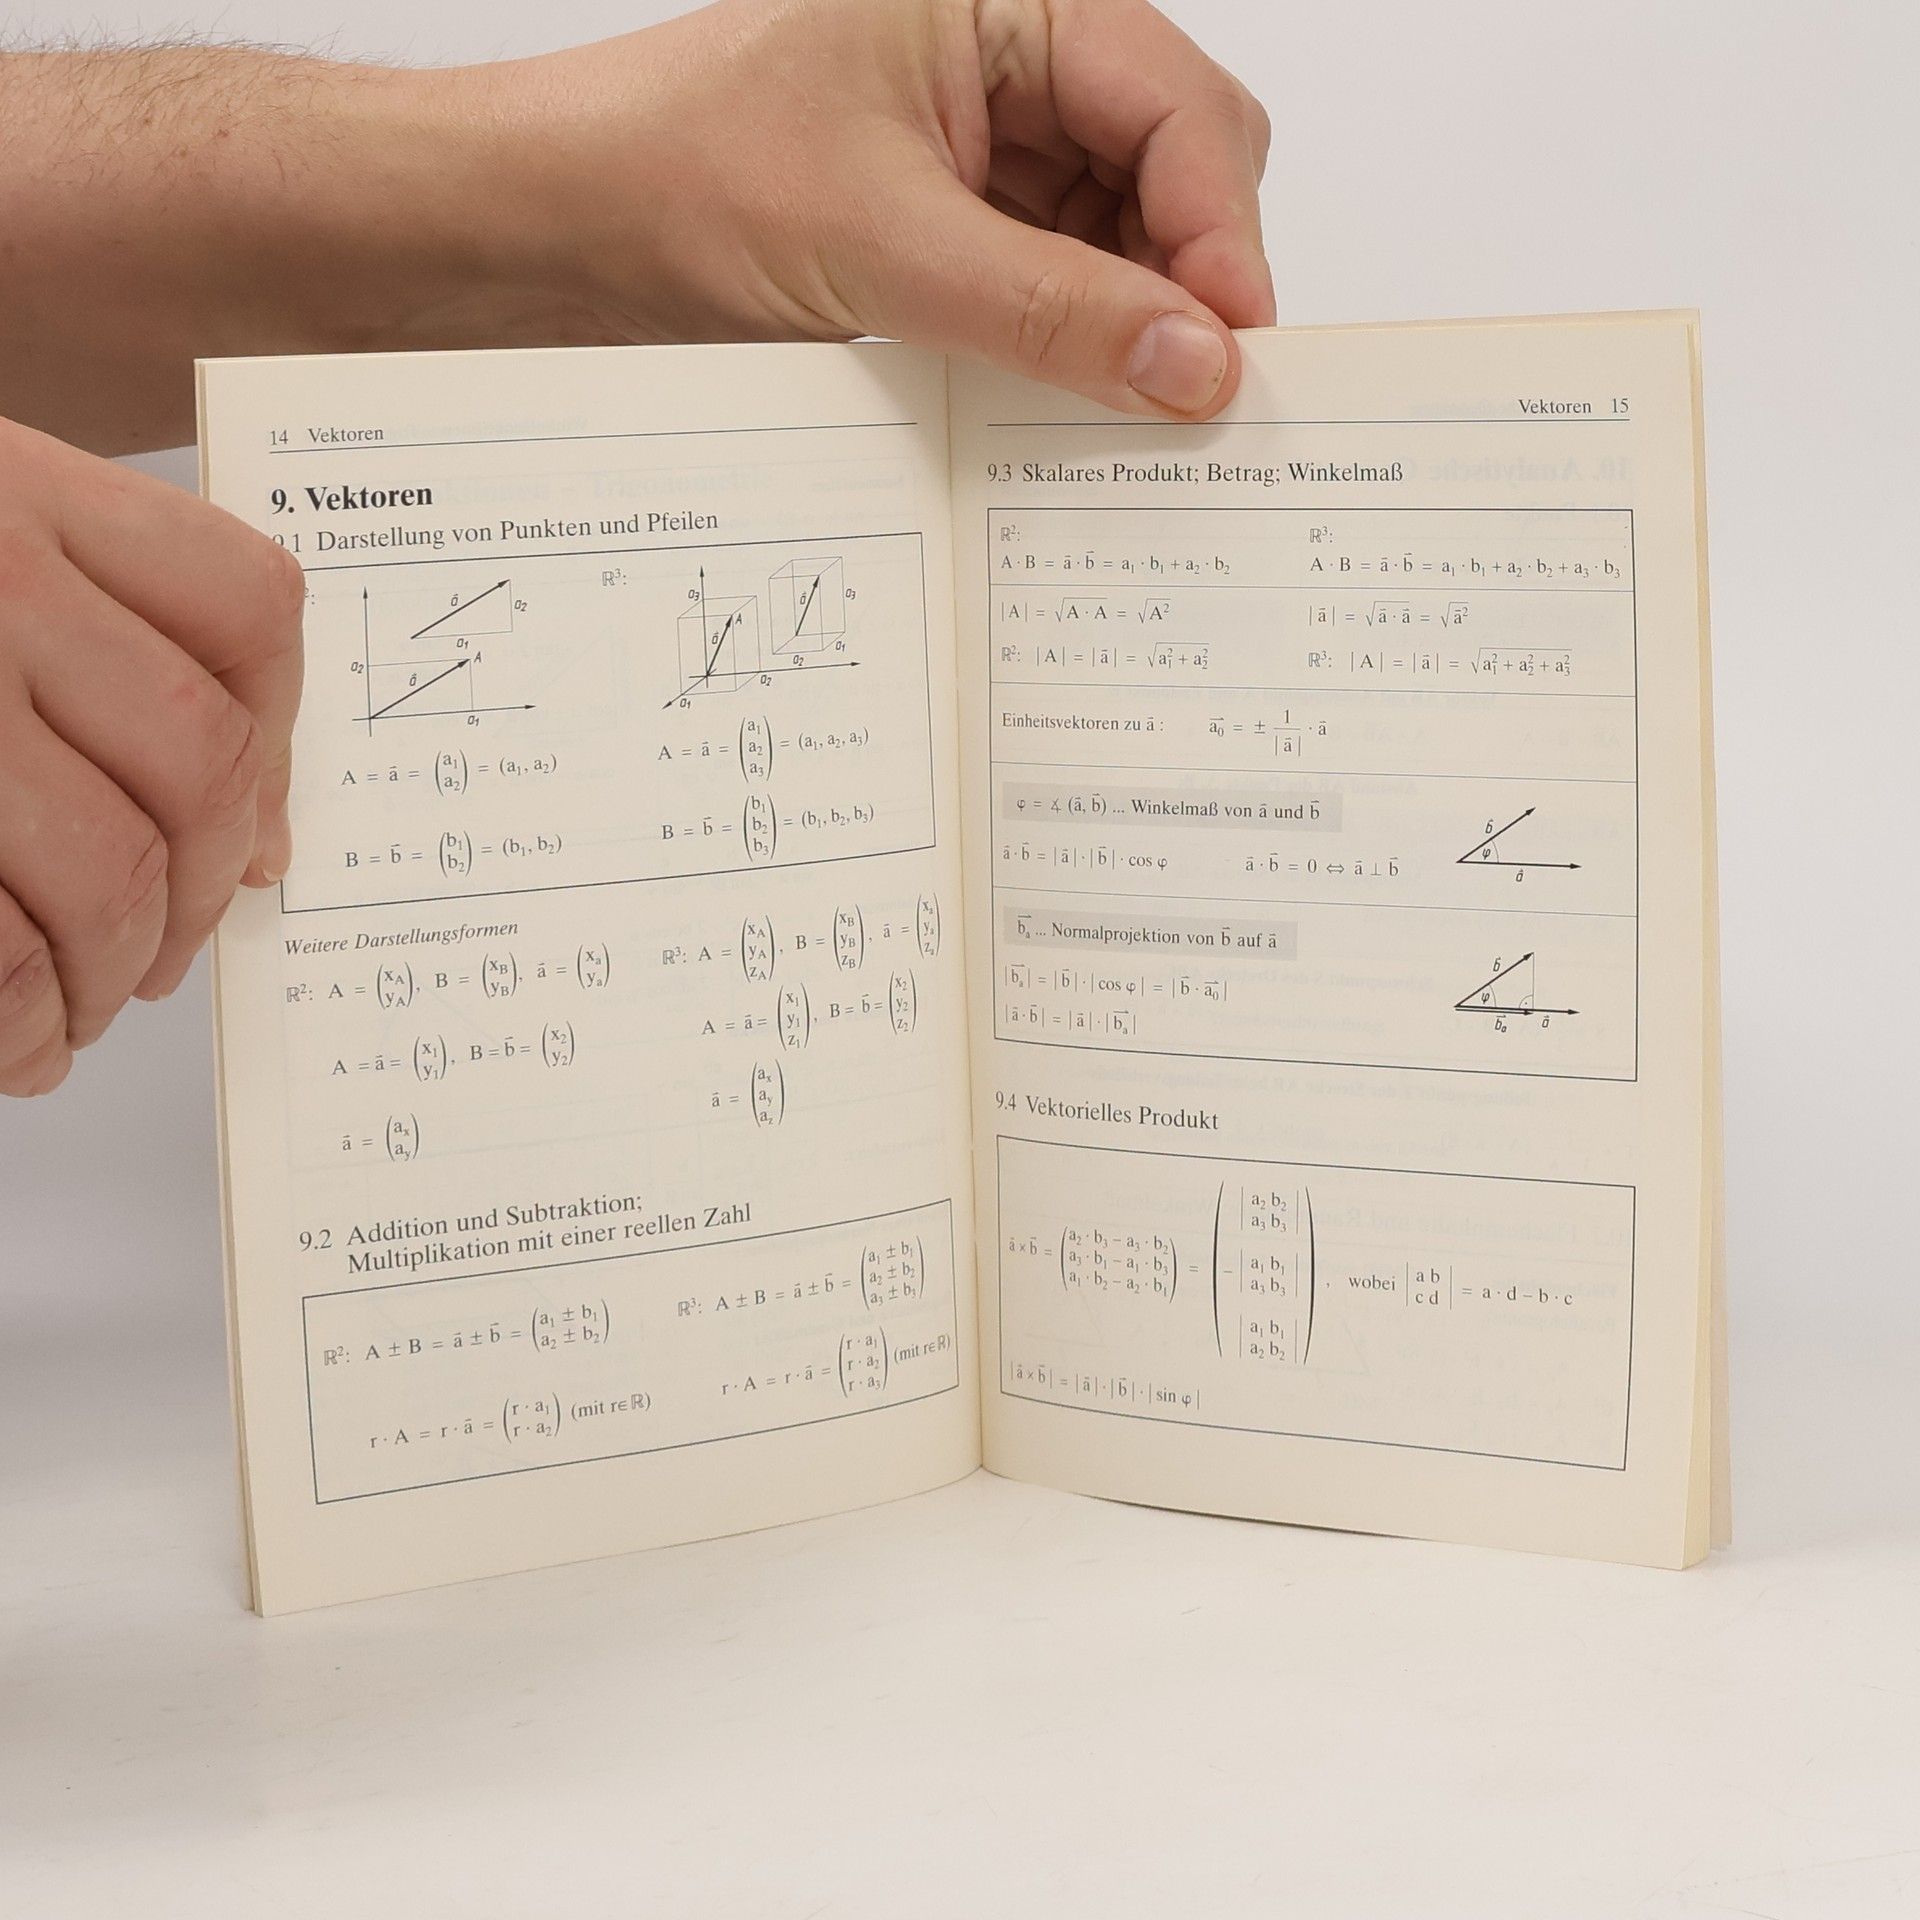 14 Vektoren
9. Vektoren
9.1 Darstellung von Punkten und Pfeilen
ℝ³:
a⃗ a₂ a₁
a₂ a⃗ A a₁
a₃ A a⃗ a₂ a₁
a⃗ a₃ a₂ a₁
A = a⃗ = (a₁ a₂) = (a₁, a₂)
A = a⃗ = (a₁ a₂ a₃) = (a₁, a₂, a₃)
B = b⃗ = (b₁ b₂) = (b₁, b₂)
B = b⃗ = (b₁ b₂ b₃) = (b₁, b₂, b₃)
Weitere Darstellungsformen
ℝ²: A = (x_A y_A), B = (x_B y_B), a⃗ = (x_a y_a)
ℝ³: A = (x_A y_A z_A), B = (x_B y_B z_B), a⃗ = (x_a y_a z_a)
A = a⃗ = (x₁ y₁), B = b⃗ = (x₂ y₂)
A = a⃗ = (x₁ y₁ z₁), B = b⃗ = (x₂ y₂ z₂)
a⃗ = (a_x a_y)
a⃗ = (a_x a_y a_z)
9.2 Addition und Subtraktion;
Multiplikation mit einer reellen Zahl
ℝ²: A ± B = a⃗ ± b⃗ = (a₁ ± b₁ a₂ ± b₂)
ℝ³: A ± B = a⃗ ± b⃗ = (a₁ ± b₁ a₂ ± b₂ a₃ ± b₃)
r · A = r · a⃗ = (r · a₁ r · a₂) (mit r∈ℝ)
r · A = r · a⃗ = (r · a₁ r · a₂ r · a₃) (mit r∈ℝ)
Vektoren 15
9.3 Skalares Produkt; Betrag; Winkelmaß
ℝ²: ℝ³:
A · B = a⃗ · b⃗ = a₁ · b₁ + a₂ · b₂
A · B = a⃗ · b⃗ = a₁ · b₁ + a₂ · b₂ + a₃ · b₃
|A| = √(A · A) = √(A²)
|a⃗| = √(a⃗ · a⃗) = √(a⃗²)
ℝ²: |A| = |a⃗| = √(a₁² + a₂²)
ℝ³: |A| = |a⃗| = √(a₁² + a₂² + a₃²)
Einheitsvektoren zu a⃗ : a₀⃗ = ± 1/|a⃗| · a⃗
φ = ∡ (a⃗, b⃗) ... Winkelmaß von a⃗ und b⃗
a⃗ · b⃗ = |a⃗| · |b⃗| · cos φ
a⃗ · b⃗ = 0 ⇔ a⃗ ⊥ b⃗
b⃗ φ a⃗
b_a⃗ ... Normalprojektion von b⃗ auf a⃗
|b_a⃗| = |b⃗| · |cos φ| = |b⃗ · a₀⃗|
|a⃗ · b⃗| = |a⃗| · |b_a⃗|
b⃗ φ b_a⃗ a⃗
9.4 Vektorielles Produkt
a⃗ × b⃗ = (a₂ · b₃ – a₃ · b₂ a₃ · b₁ – a₁ · b₃ a₁ · b₂ – a₂ · b₁) = (|a₂ b₂ a₃ b₃| –|a₁ b₁ a₃ b₃| |a₁ b₁ a₂ b₂|), wobei |a b c d| = a · d – b · c
|a⃗ × b⃗| = |a⃗| · |b⃗| · |sin φ|